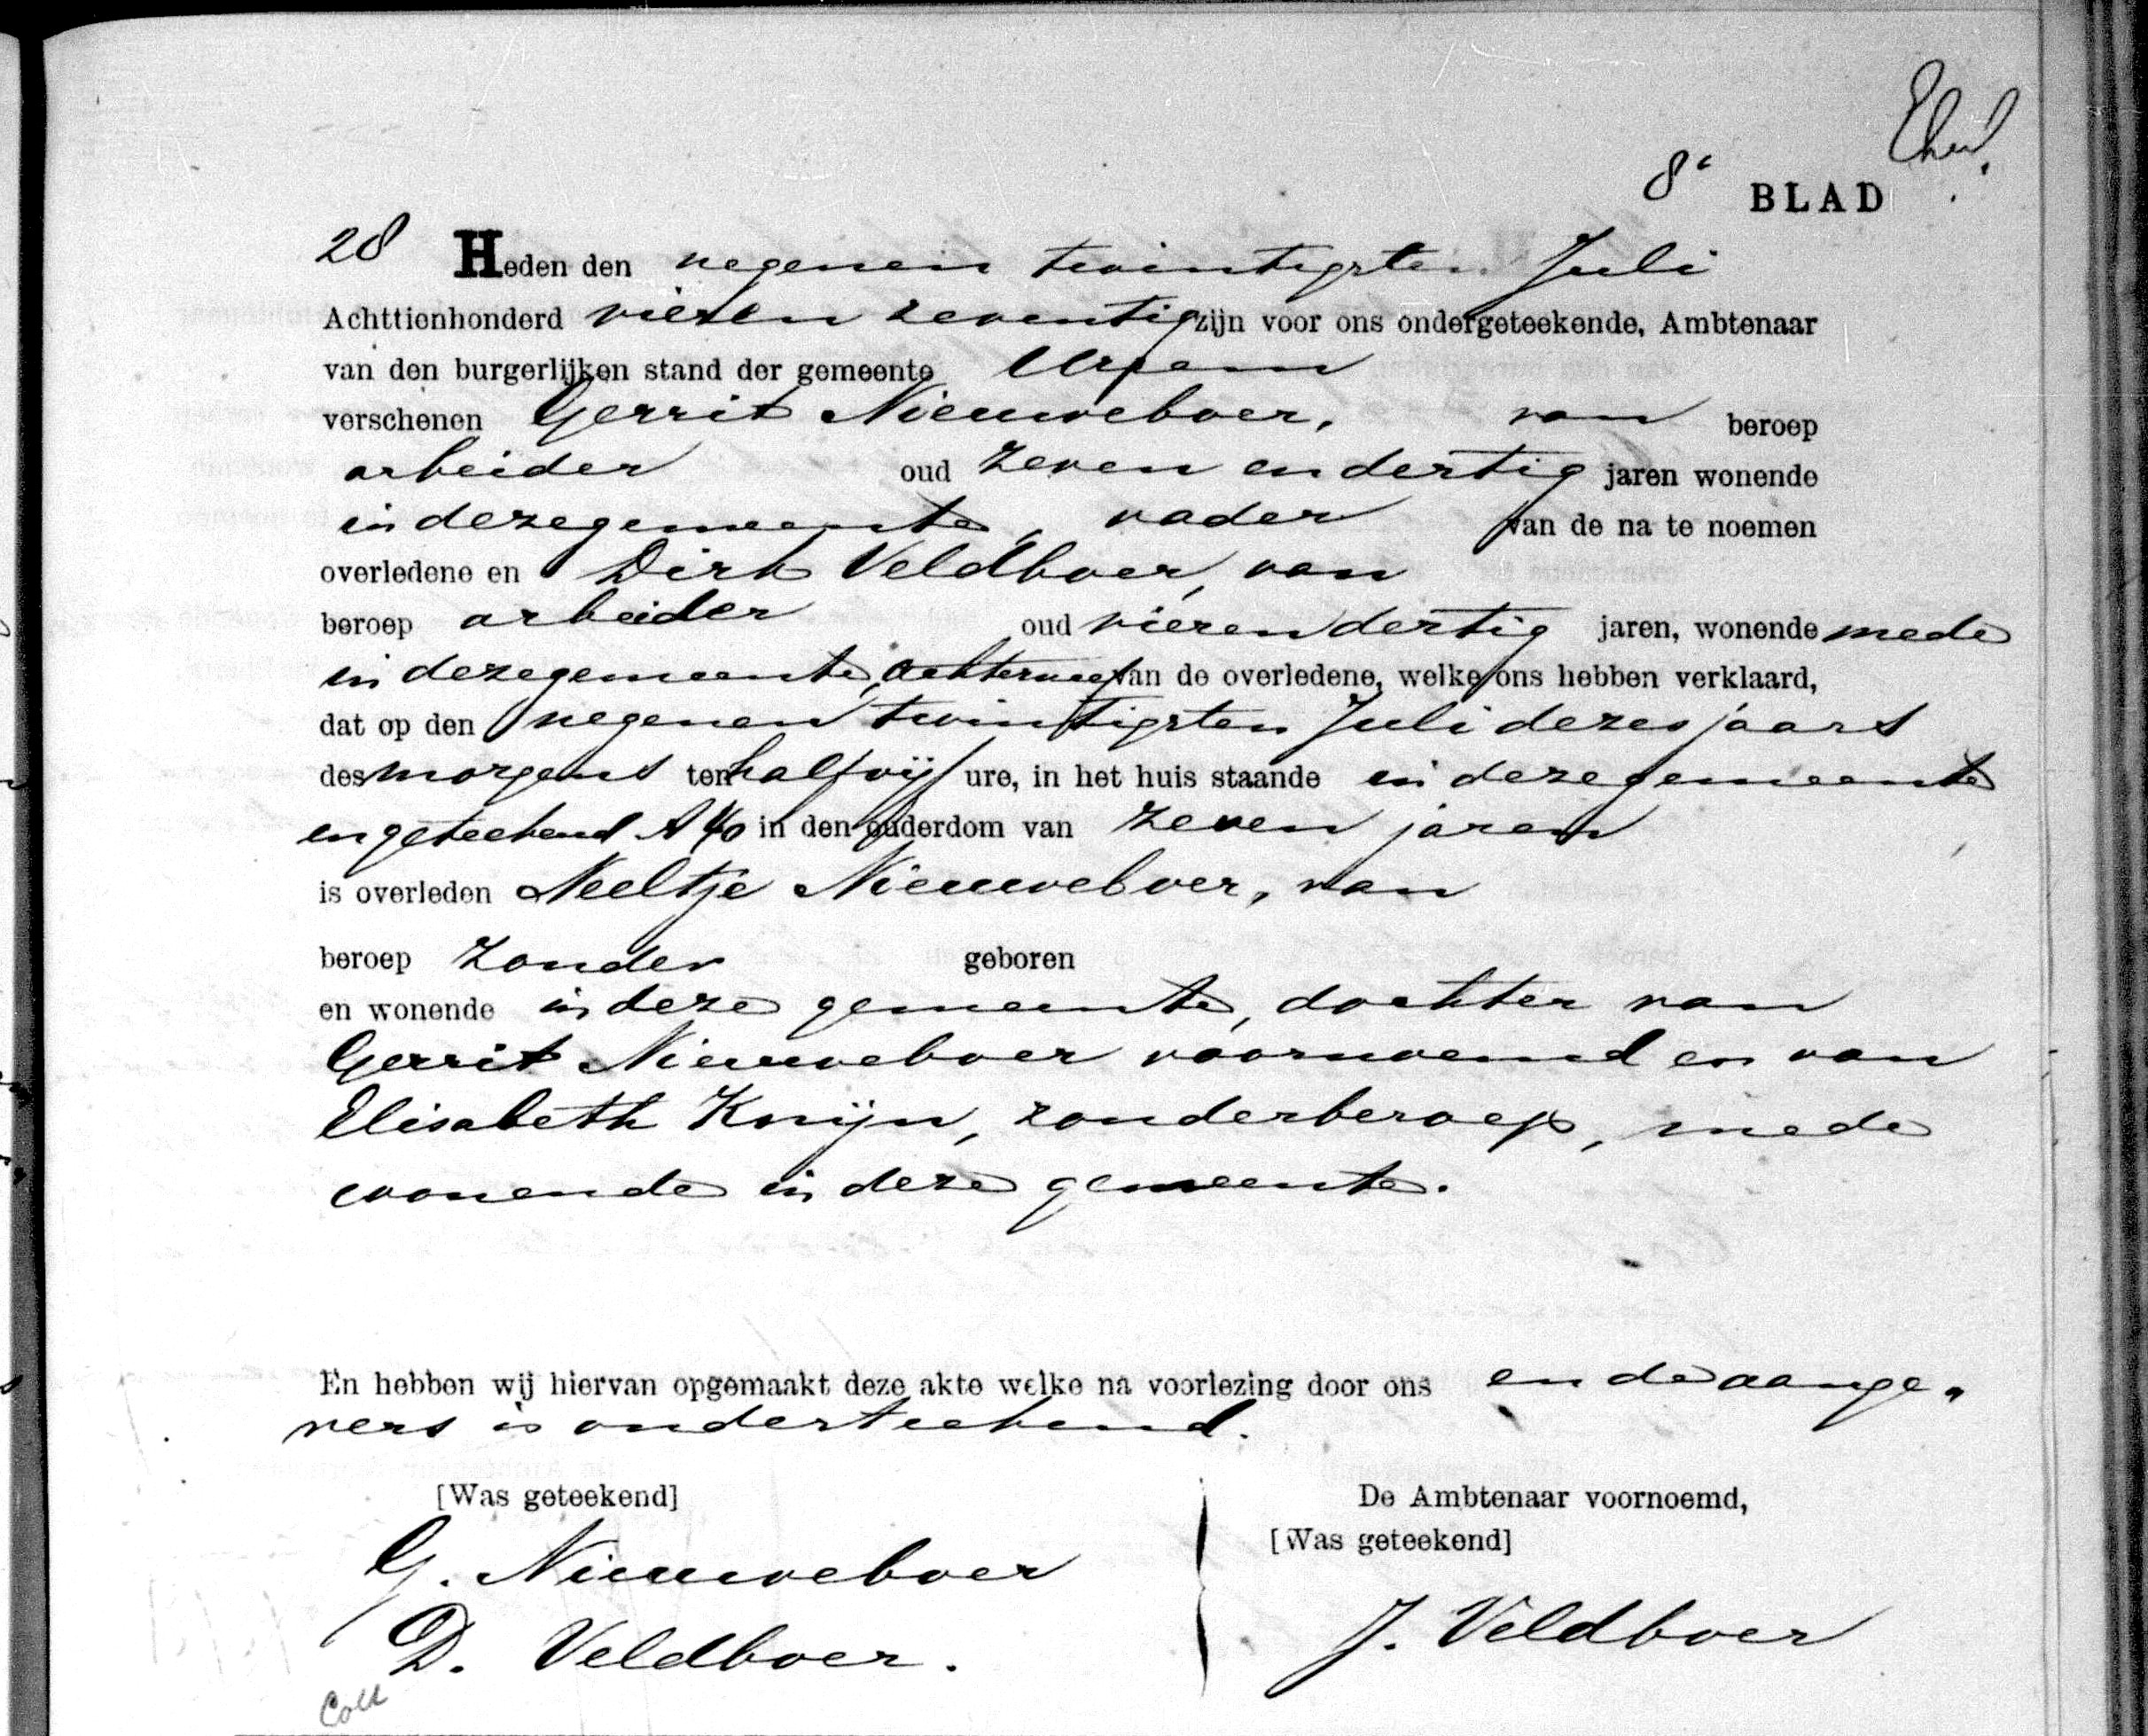 8e BLAD
28 Heden den negenen twintigsten Juli
Achttienhonderd vieren zeventig zijn voor ons ondergeteekende, Ambtenaar
van den burgerlijken stand der gemeente Ursem
verschenen Gerrit Nieuweboer, van beroep
arbeider oud zeven en dertig jaren wonende
in deze gemeente, vader van de na te noemen
overledene en Dirk Veldboer, van
beroep arbeider oud vieren dertig jaren, wonende mede
in deze gemeente, achterneef van de overledene, welke ons hebben verklaard,
dat op den negenen twintigsten Juli dezes jaars
des morgens ten half vijf ure, in het huis staande in deze gemeente
en geteekend A 40 in den ouderdom van zeven jaren
is overleden Neeltje Nieuweboer, van
beroep zonder geboren
en wonende in deze gemeente, dochter van
Gerrit Nieuweboer voornoemd en van
Elisabeth Knijn, zonder beroep, mede
wonende in deze gemeente.
En hebben wij hiervan opgemaakt deze akte welke na voorlezing door ons en de aange„
vers is onderteekend.
[Was geteekend]
G. Nieuweboer
D. Veldboer.
De Ambtenaar voornoemd,
[Was geteekend]
J. Veldboer
Coll